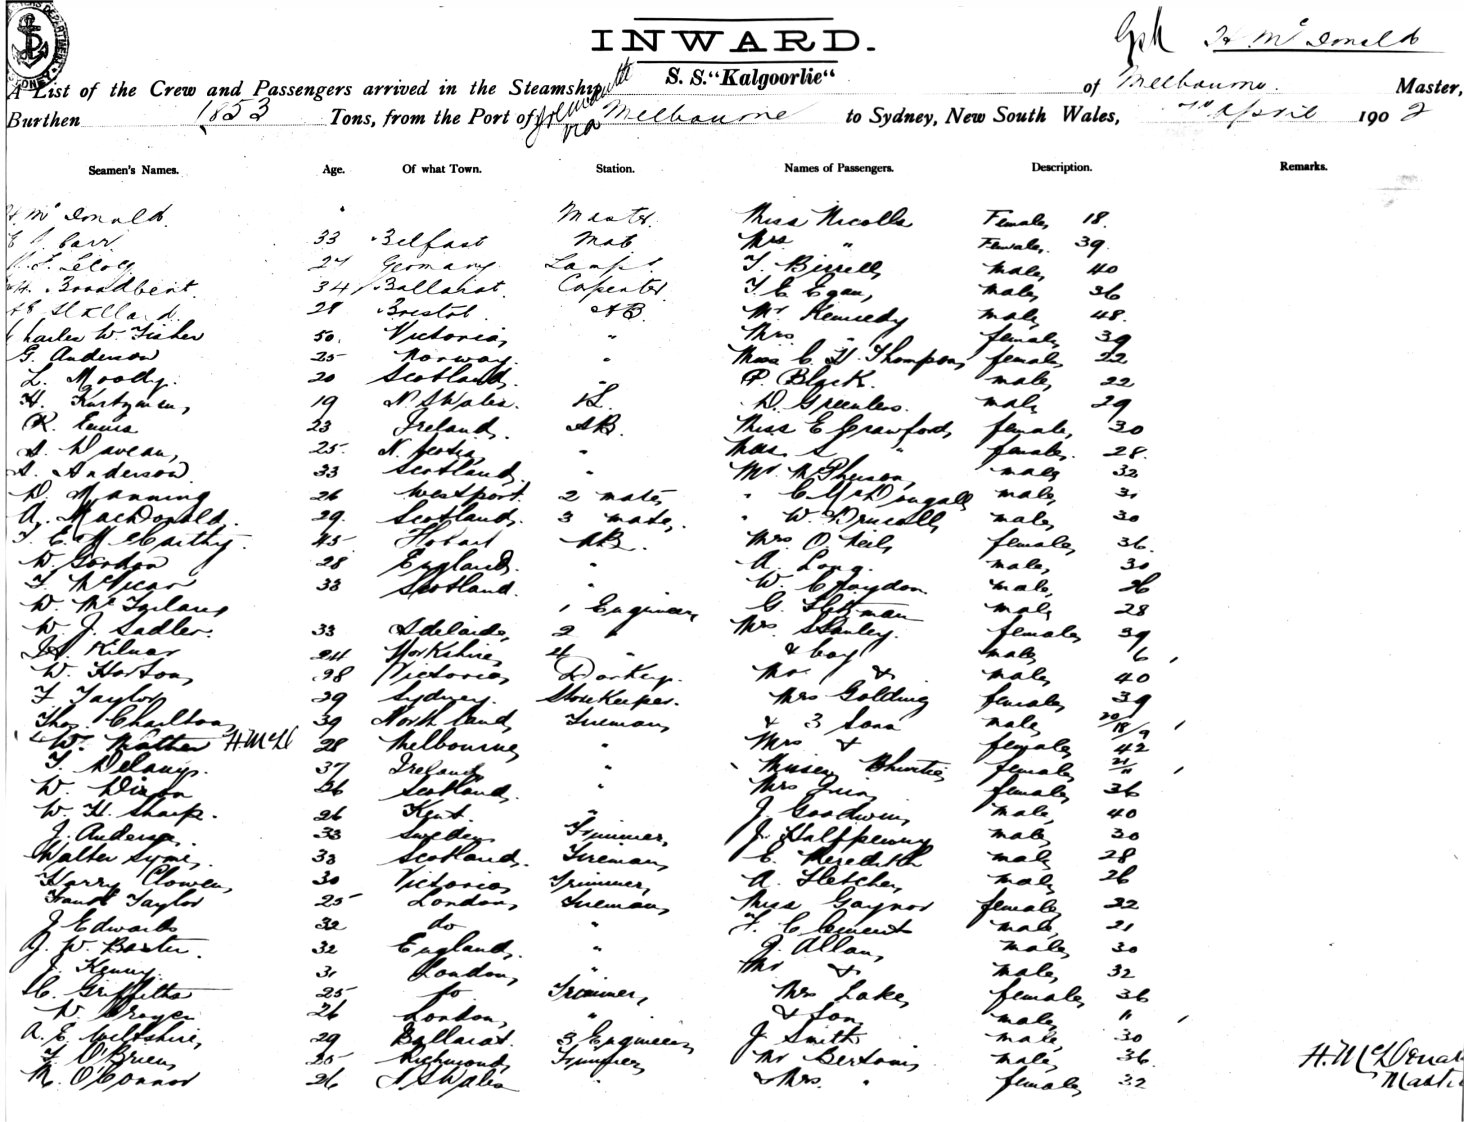 INWARD.
H Mc Donald
S. S. "Kalgoorlie"
A List of the Crew and Passengers arrived in the Steamship of Melbourne. Master,
Burthen 1853 Tons, from the Port of Fremantle via Melbourne to Sydney, New South Wales, April 1902
Seamen's Names. Age. Of what Town. Station. Names of Passengers. Description. Remarks.
H. Mc Donald Master. Miss Nicolls Female 18.
Carr 33 Belfast Mate Mrs " Female. 39.
27 Germany Lamps. T. Birrell male 40
Broadbent 34 Ballarat. Carpenter. T. E Egan, male, 36
28 Bristol. AB. Mr Kennedy male, 48.
Charles W. Fisher 50. Victoria, " Mrs " female, 39
G. Anderson 25 Norway. " Miss C. H. Thompson, female, 22
L. Moody. 20 Scotland. " P. Black. male, 22
H. 19 N S Wales. D. Greenlees. male 29
R. Ennis 23 Ireland. AB. Miss E Crawford, female, 30
Daveau, 25. N. Scotia, " Miss S " female. 28.
A. Anderson 33 Scotland, " Mr. McPherson, male 32
D. Manning 26 Westport. 2 mate, " C McDougall male, 31
A. MacDonald. 29. Scotland. 3 mate, " W. Driscoll male, 30
T. E. McCarthy. 45 Hobart AB. Mrs O Neil, female, 36.
D. Gordon 28 England. " A. Long. male, 30
T McVicar 33 Scotland. " W. Claydon male, 26
D. McFarlane 1 Engineer, G. male 28
W J. Sadler. 33 Adelaide, 2 " Mrs. Stanley. female, 39
Kilner 24 Yorkshire, 4 " & boy male, 6
W. Horton, 28 Victoria, Donkey. Mr & male, 40
F Taylor 29 Sydney. Storekeeper. Mrs Golding female, 39
Thos. Charlton, 39 Northland, Fireman, & 3 Sons male, 20/18/9
W. Mather H. McD 28 Melbourne, " Mrs & female, 42
T. Delany. 37 Ireland, " Misses Christie, female, 21/11
W Dixon 26 Scotland. " Mrs female, 36
W. H. Sharp. 26 Kent. " J. Goodwin, male, 40
J. Anderson. 33 Sweden, Trimmer, J. Halfpenny male, 30
Walter Syme, 33 Scotland. Fireman, C. Meredith male 28
Harry Clowes, 30 Victoria, Trimmer, A. Fletcher, male, 26
Frank Taylor 25 London, Fireman, Miss Gaynor female, 22
J Edwards 32 do " F. Clement male, 21
J. W. Baxter. 32 England. " J. Allan, male, 30
J. Kenny. 31 London, " Mr & male, 32
C. Griffiths 25 do Trimmer, Mrs Lake, female, 36
26 London, " & Son male, 11
A. E. Wiltshire, 29 Ballarat. 3 Engineer, J. Smith male, 30
T O'Brien, 25 Richmond, Trimmer, Mr male, 36.
M. O'Connor 26 N S Wales " & Mrs. " female, 32
H. McDonald
Master